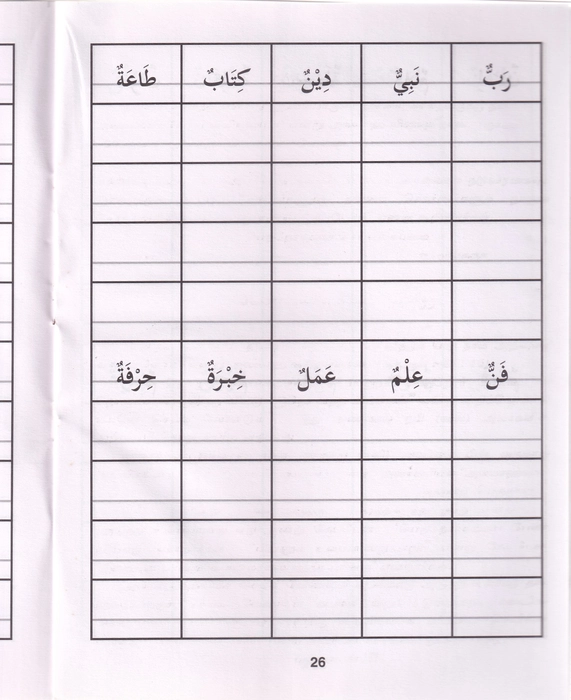 رَبٌّ نَبِيٌّ دِيْنٌ كِتَابٌ طَاعَةٌ
فَنٌّ عِلْمٌ عَمَلٌ خِبْرَةٌ حِرْفَةٌ
26